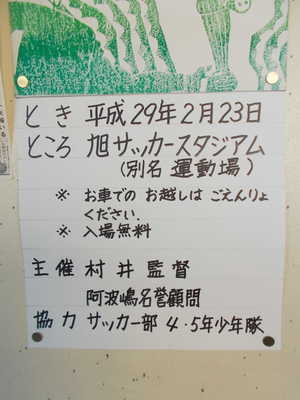 とき 平成29年2月23日
ところ 旭サッカースタジアム
(別名 運動場)
※ お車での お越しは ごえんりょ
ください.
※ 入場無料
主催 村井監督
阿波嶋名誉顧問
協力 サッカー部 4・5年少年隊